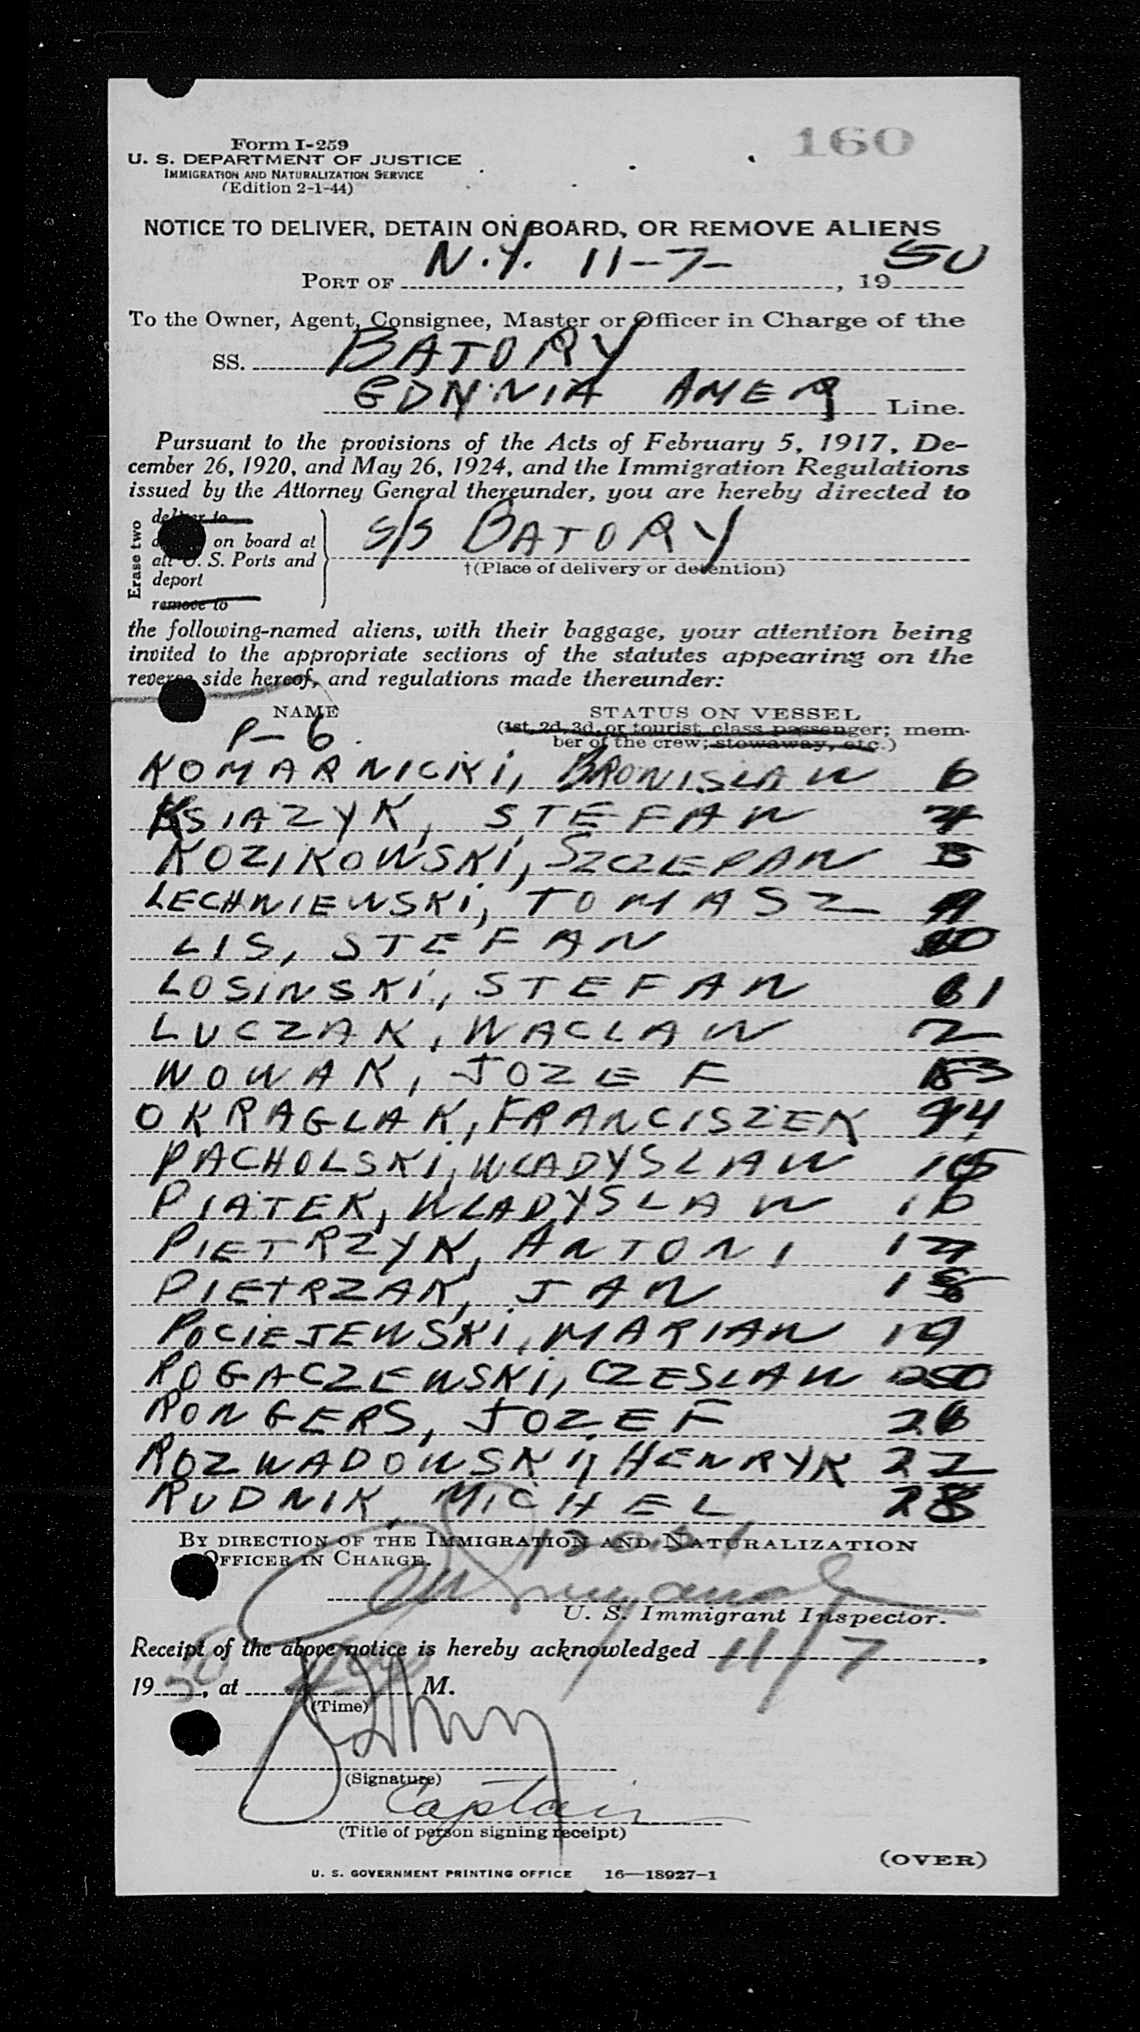 160
Form I-259
U. S. DEPARTMENT OF JUSTICE
IMMIGRATION AND NATURALIZATION SERVICE
(Edition 2-1-44)
NOTICE TO DELIVER, DETAIN ON BOARD, OR REMOVE ALIENS
PORT OF N.Y. 11-7-, 1950
To the Owner, Agent, Consignee, Master or Officer in Charge of the
SS. BATORY
GDYNIA AMER Line.
Pursuant to the provisions of the Acts of February 5, 1917, De-
cember 26, 1920, and May 26, 1924, and the Immigration Regulations
issued by the Attorney General thereunder, you are hereby directed to
Erase two
deliver to
on board at
all U. S. Ports and
deport
remove to
S/S BATORY
†(Place of delivery or detention)
the following-named aliens, with their baggage, your attention being
invited to the appropriate sections of the statutes appearing on the
reverse side hereof, and regulations made thereunder:
NAME STATUS ON VESSEL
P-6. (1st, 2d, 3d, or tourist class passenger; mem-
ber of the crew; stowaway, etc.)
KOMARNICKI, BRONISLAW 6
KSIAZYK, STEFAN
KOZIKOWSKI, SZCZEPAN
LECHNIEWSKI, TOMASZ
LIS, STEFAN
LOSINSKI, STEFAN
LUCZAK, WACLAW 2
NOWAK, JOZEF
OKRAGLAK, FRANCISZEK
PACHOLSKI, WLADYSLAW
PIATEK, WLADYSLAW
PIETRZYK, ANTONI
PIETRZAK, JAN
POCIEJEWSKI, MARIAN 19
ROGACZEWSKI, CZESLAW
RONGERS, JOZEF
ROZWADOWSKI, HENRYK 22
RUDNIK, MICHEL
BY DIRECTION OF THE IMMIGRATION AND NATURALIZATION
OFFICER IN CHARGE.
U. S. Immigrant Inspector.
Receipt of the above notice is hereby acknowledged 11/7,
1950, at M.
(Time)
(Signature)
Captain
(Title of person signing receipt)
(OVER)
U. S. GOVERNMENT PRINTING OFFICE 16—18927-1